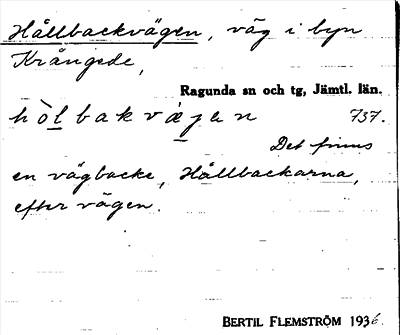 Hållbackvägen, väg i byn
Krångede,
Ragunda sn och tg, Jämtl. län.
hòlbakvä̀jen 737.
Det finns
en vägbacke, Hållbackarna,
efter vägen.
BERTIL FLEMSTRÖM 1936.